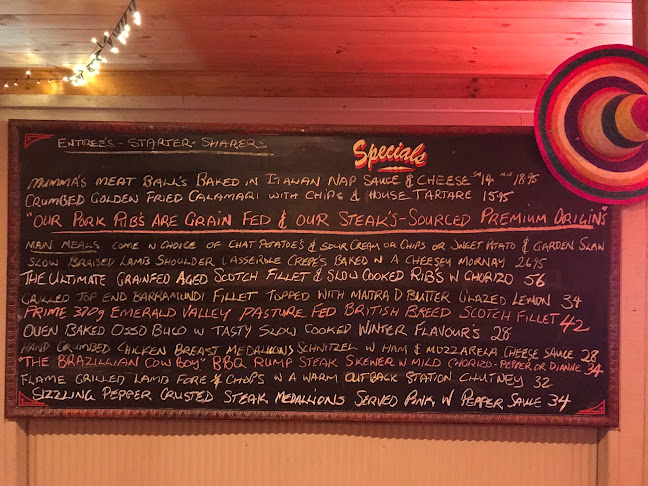 ENTREE'S - STARTER - SHARERS
Specials
MUMMA'S MEAT BALL'S BAKED IN ITALIAN NAP SAUCE & CHEESE SM 14 MED 18.95
CRUMBED GOLDEN FRIED CALAMARI WITH CHIPS & HOUSE TARTARE 15.95
"OUR PORK RIB'S ARE GRAIN FED & OUR STEAK'S - SOURCED PREMIUM ORIGIN'S
MAIN MEALS COME W CHOICE OF CHAT POTATOE'S & SOUR CREAM OR CHIPS OR SWEET POTATO & GARDEN SLAW
SLOW BRAISED LAMB SHOULDER CASSEROLE CREPE'S BAKED IN A CHEESEY MORNAY 26.95
THE ULTIMATE GRAINFED AGED SCOTCH FILLET & SLOW COOKED RIB'S W CHORIZO 56
GRILLED TOP END BARRAMUNDI FILLET TOPPED WITH MAITRA D BUTTER GLAZED LEMON 34
PRIME 320g EMERALD VALLEY PASTURE FED BRITISH BREED SCOTCH FILLET 42
OVEN BAKED OSSO BUCO W TASTY SLOW COOKED WINTER FLAVOUR'S 28
HAND CRUMBED CHICKEN BREAST MEDALLIONS SCHNITZEL W HAM & MOZZARELA CHEESE SAUCE 28
"THE BRAZILLIAN COWBOY" BBQ RUMP STEAK SKEWER W MILD CHORIZO - PEPPER OR DIANNE 34
FLAME GRILLED LAMB FORE & CHOPS W A WARM OUTBACK STATION CHUTNEY 32
SIZZLING PEPPER CRUSTED STEAK MEDALLIONS SERVED PINK W PEPPER SAUCE 34